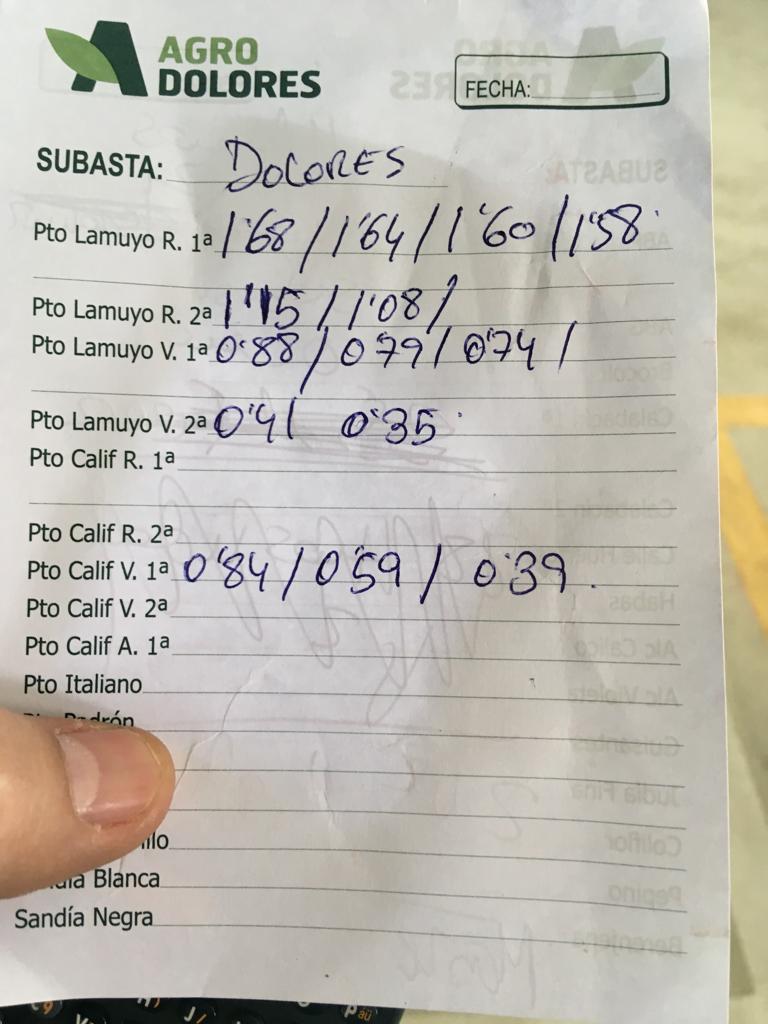 AGRO
DOLORES
FECHA:
SUBASTA: DOLORES
Pto Lamuyo R. 1ª 1'68 / 1'64 / 1'60 / 1'58
Pto Lamuyo R. 2ª 1'15 / 1'08 /
Pto Lamuyo V. 1ª 0'88 / 0'79 / 0'74 /
Pto Lamuyo V. 2ª 0'41 0'35
Pto Calif R. 1ª
Pto Calif R. 2ª
Pto Calif V. 1ª 0'84 / 0'59 / 0'39.
Pto Calif V. 2ª
Pto Calif A. 1ª
Pto Italiano
Padrón
Blanca
Sandía Negra